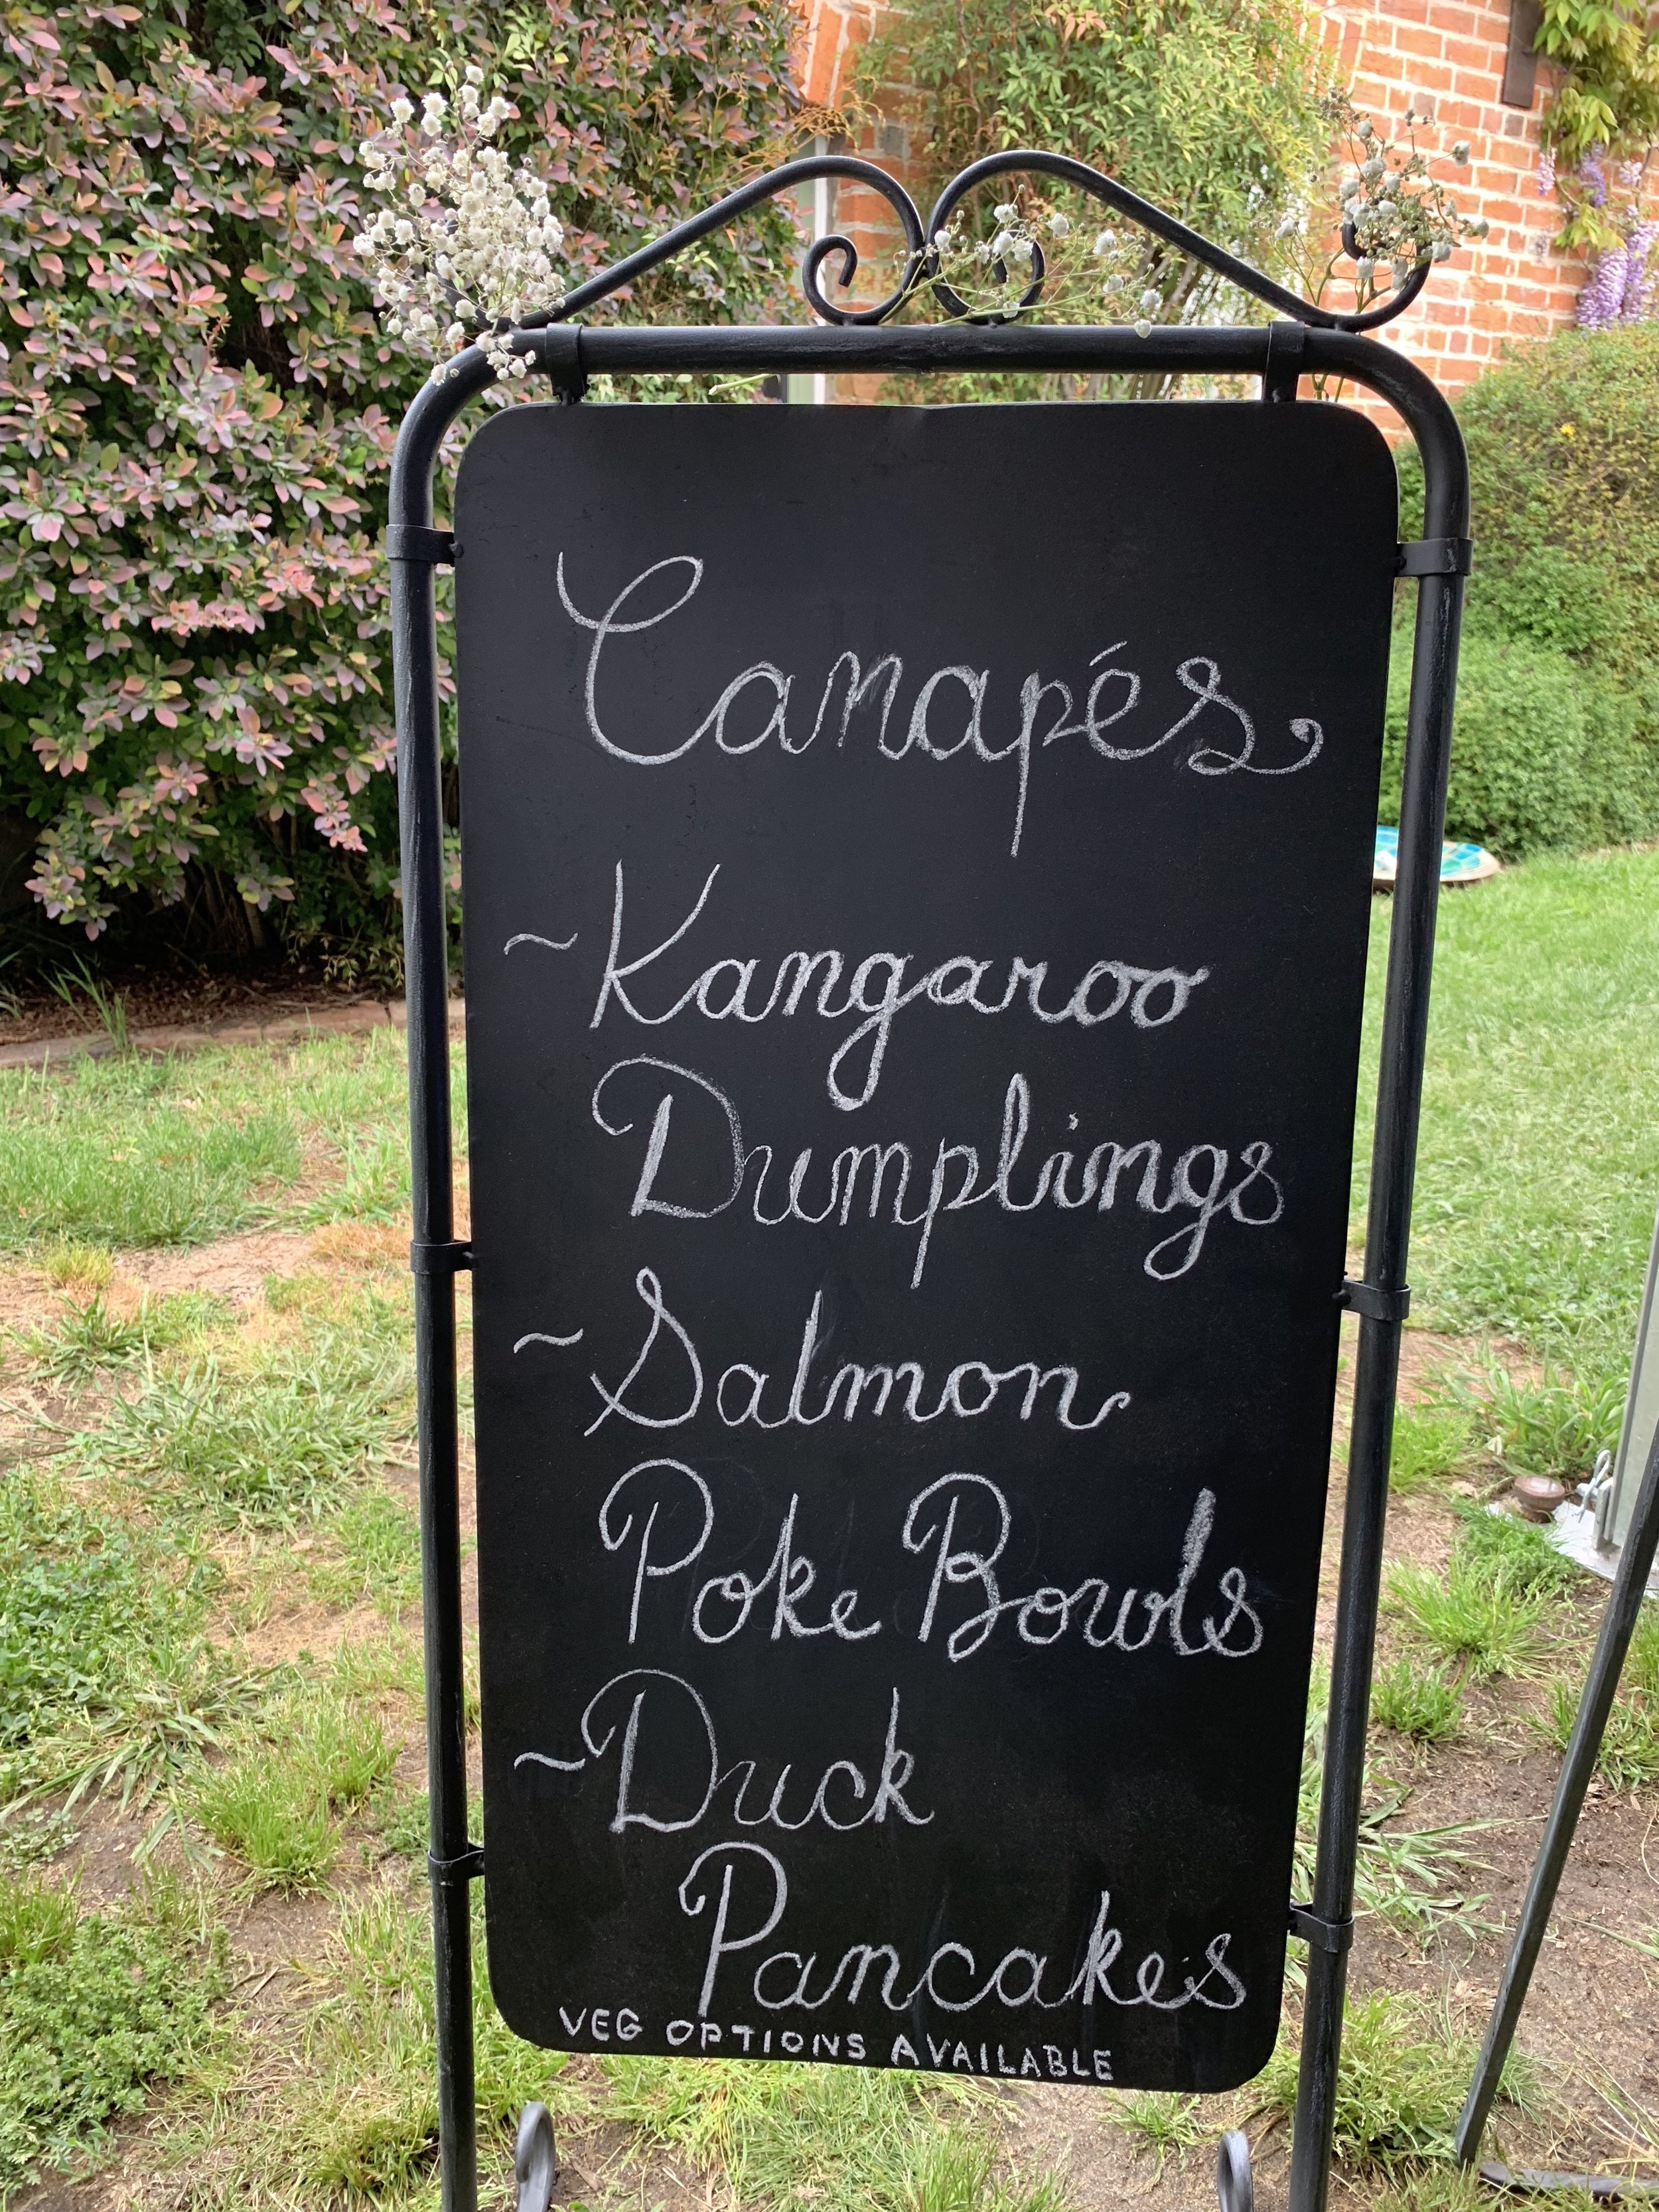 Canapés
~Kangaroo
Dumplings
~Salmon
Poke Bowls
~Duck
Pancakes
VEG OPTIONS AVAILABLE